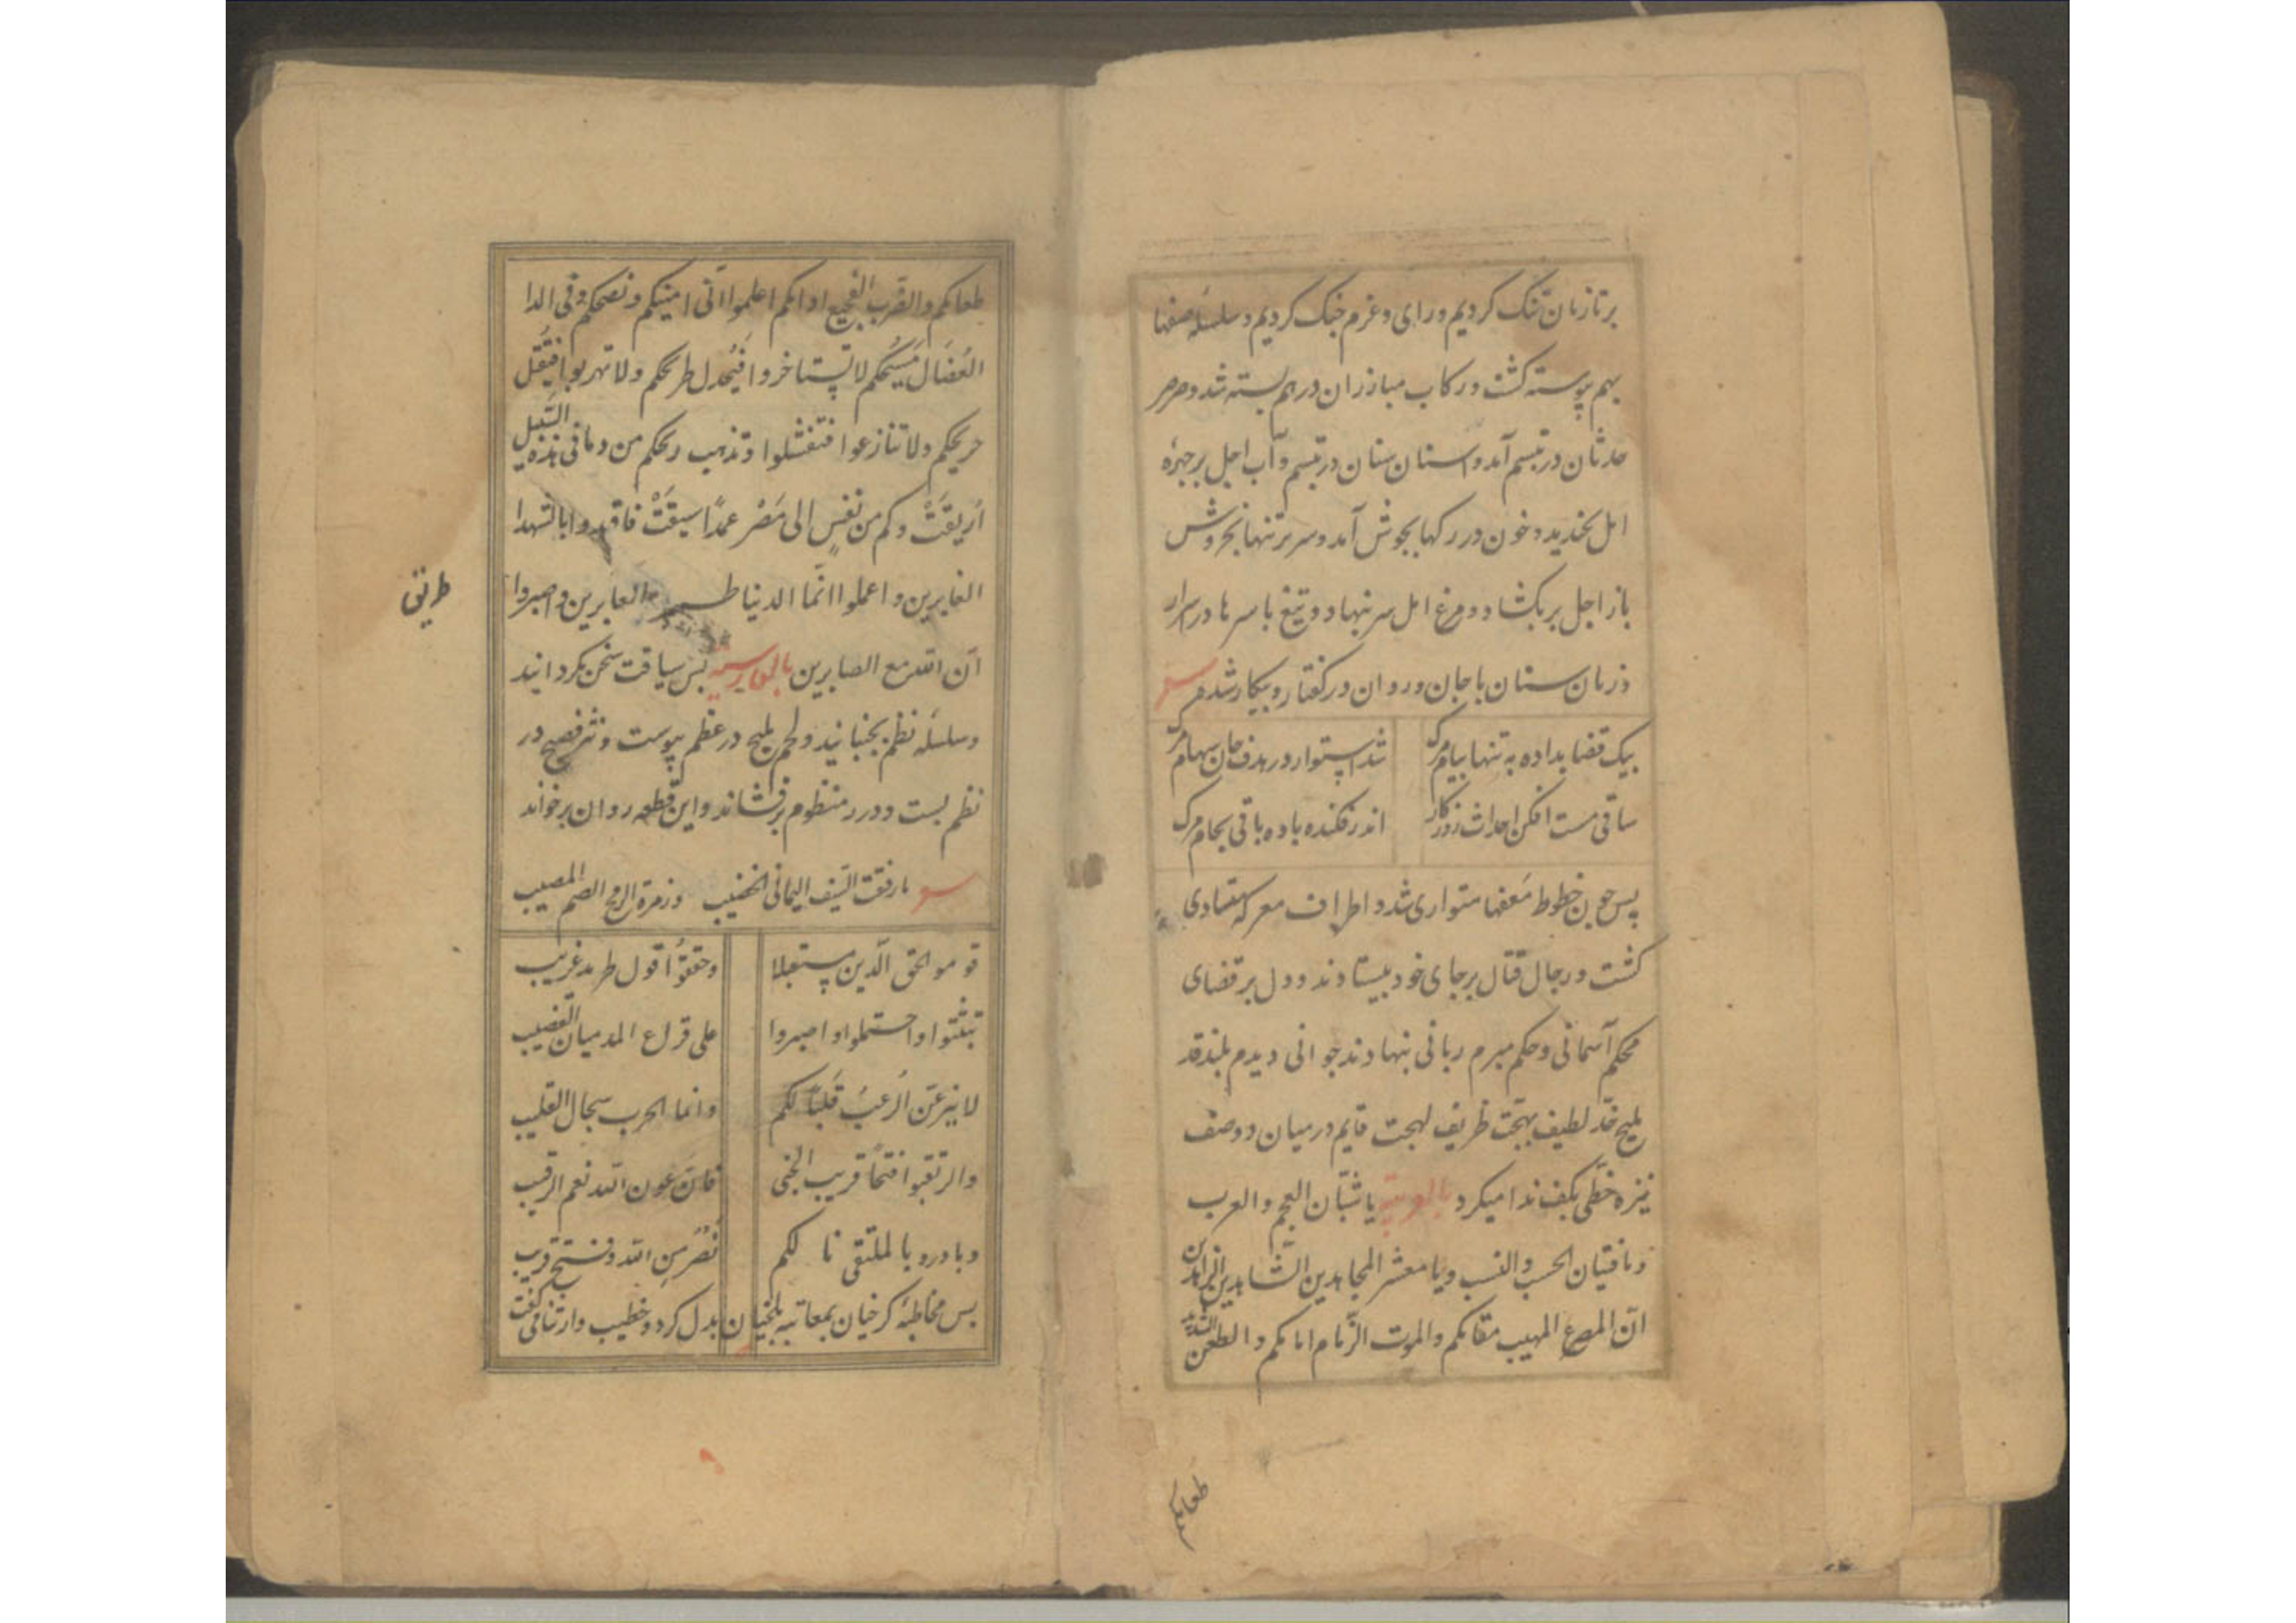 بر تازیان تنک کردیم و رای و عزم جنک کردیم و سلسلهٔ صفها
بهم پیوسته کشت و رکاب مبارزان در هم بسته شد و صرصر
حدثان در تبسم آمد و اسنان سنان در تبسم و آب اجل بر چهرهٔ
امل بخندید و خون در رکها بجوش آمد و سر بر تنها بخروش
باز اجل پر بکشاد و مرغ امل سر بنهاد و تیغ با سرها در اسرار
و زبان سنان با جان و روان در کفتار و بیکار شد
پیک قضا بداده به تنها پیام مرک
شد استوار در هدف جان سهام مرک
ساقی مست افکن احداث روزکار
اندر فکنده باده باقی بجام مرک
پس چون خطوط صفها متواری شد و اطراف معرکه متساوی
کشت و رجال قتال بر جای خود بیستادند و دل بر قضای
محکم آسمانی و حکم مبرم ربانی بنهادند جوانی دیدم بلند قد
ملیح خد لطیف بهجت ظریف لهجت قایم در میان دو صف
نیزه خطی بکف ندا میکرد بالعربیة یا شبان العجم و العرب
و یا فتیان الحسب و النسب و یا معشر المجاهدین الشاهدین الزاهدین
ان المصرع المهیب مقامکم و الموت الزمام امامکم و الطعن الشدید
طعامکم
طعامکم و الضرب الفجیع ادامکم اعلموا انی امینکم و نصحکم و فی الدا
العضال مسیحکم لا تستاخروا فیجدل طریحکم ولا تهربوا فیقتل
جریحکم ولا تنازعوا فتفشلوا و تذهب ریحکم من دما فی هذه السبیل
اریقت و کم من نفس الی مضر عمدا سیقت فاقتدوا بالشهدا
الغابرین و اعملوا انما الدنیا العابرین و اصبروا
طریق
ان الله مع الصابرین بالفارسیه پس سیاقت سخن بکردانید
و سلسله نظم بجنبانید و لحم ملیح در عظم پیوست و نثر فصیح در
نظم بست و درر منظوم برفشاند و این قطعه روان برخواند
یا رفقة السیف الیمانی الخضیب
و زمرة الرمح الاصم المصیب
قوموا لحق الدین
و حققوا قول طرید غریب
تثبتوا و احتملوا و اصبروا
علی قراع المدمیان القضیب
لا ینزعن الرعب قلبا لکم
و انما الحرب سجال القلیب
و ارتقبوا فتحا قریب الجنی
فان عون الله نعم الرقیب
و بادروا بالملتقی نا لکم
نصر من الله و فتح قریب
پس مخاطبهٔ کرخیان بمعاتبه بلخیان بدل کرد و خطیب وار ثنا می کفت